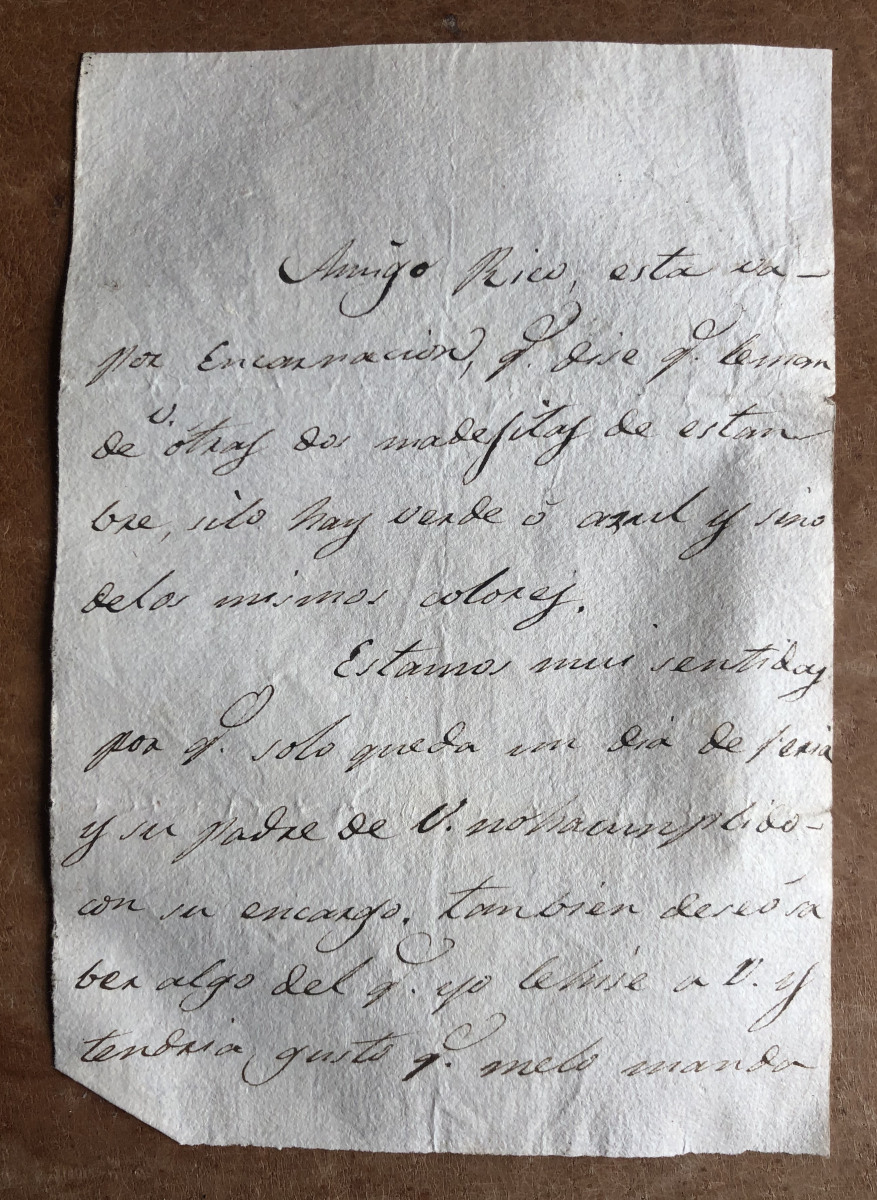 Amigo Rico, esta va-
por Encarnacion, q.e dise q.e leman
de V. otras dos madesitas de estan
bre, silo hay verde ó azul y sino
delos mismos colores.
Estamos mui sentidas
por q.e solo queda un dia de feria
y su padre de V. nohacumplido-
con su encargo. tanbien deseó sa
ber algo del q.e yo lehise a V. y
tendria gusto q.e melo manda